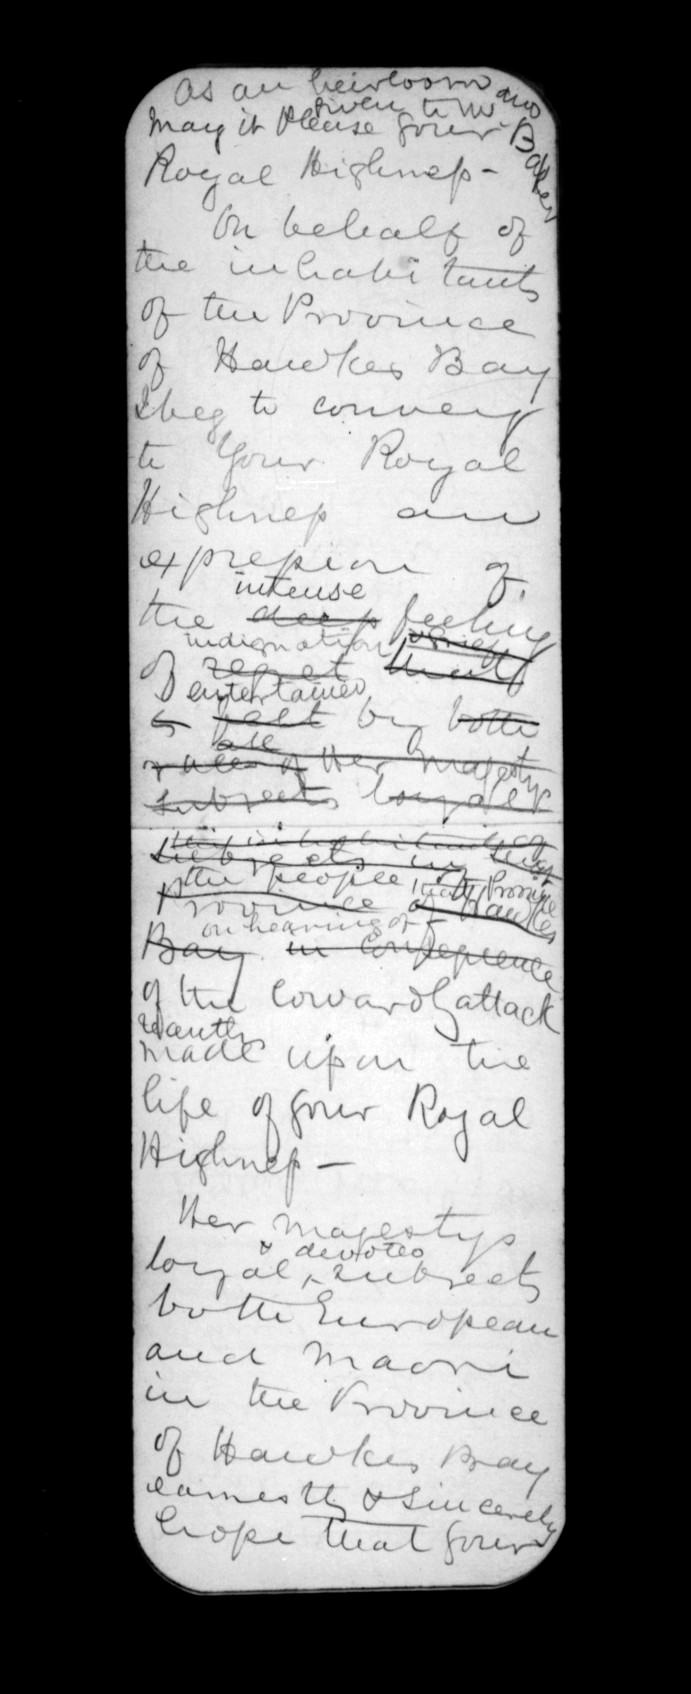 As an heirloom and
given to Mr Baker
May it Please your
Royal Highness -
On behalf of
the inhabitants
of the Province
of Hawkes Bay
I beg to convey
to Your Royal
Highness an
expression of
intense
the deep feeling
indignation
of regret
entertained
felt by both
all
races of Her Majestys
subjects loyal
subjects in
the people Province
Province of Hawkes
on hearing of
Bay in consequence
of the cowardly attack
recently
made upon the
life of your Royal
Highness -
Her Majestys
& devoted
loyal, subjects
both European
and Maori
in the Province
of Hawkes Bay
earnestly & sincerely
hope that your